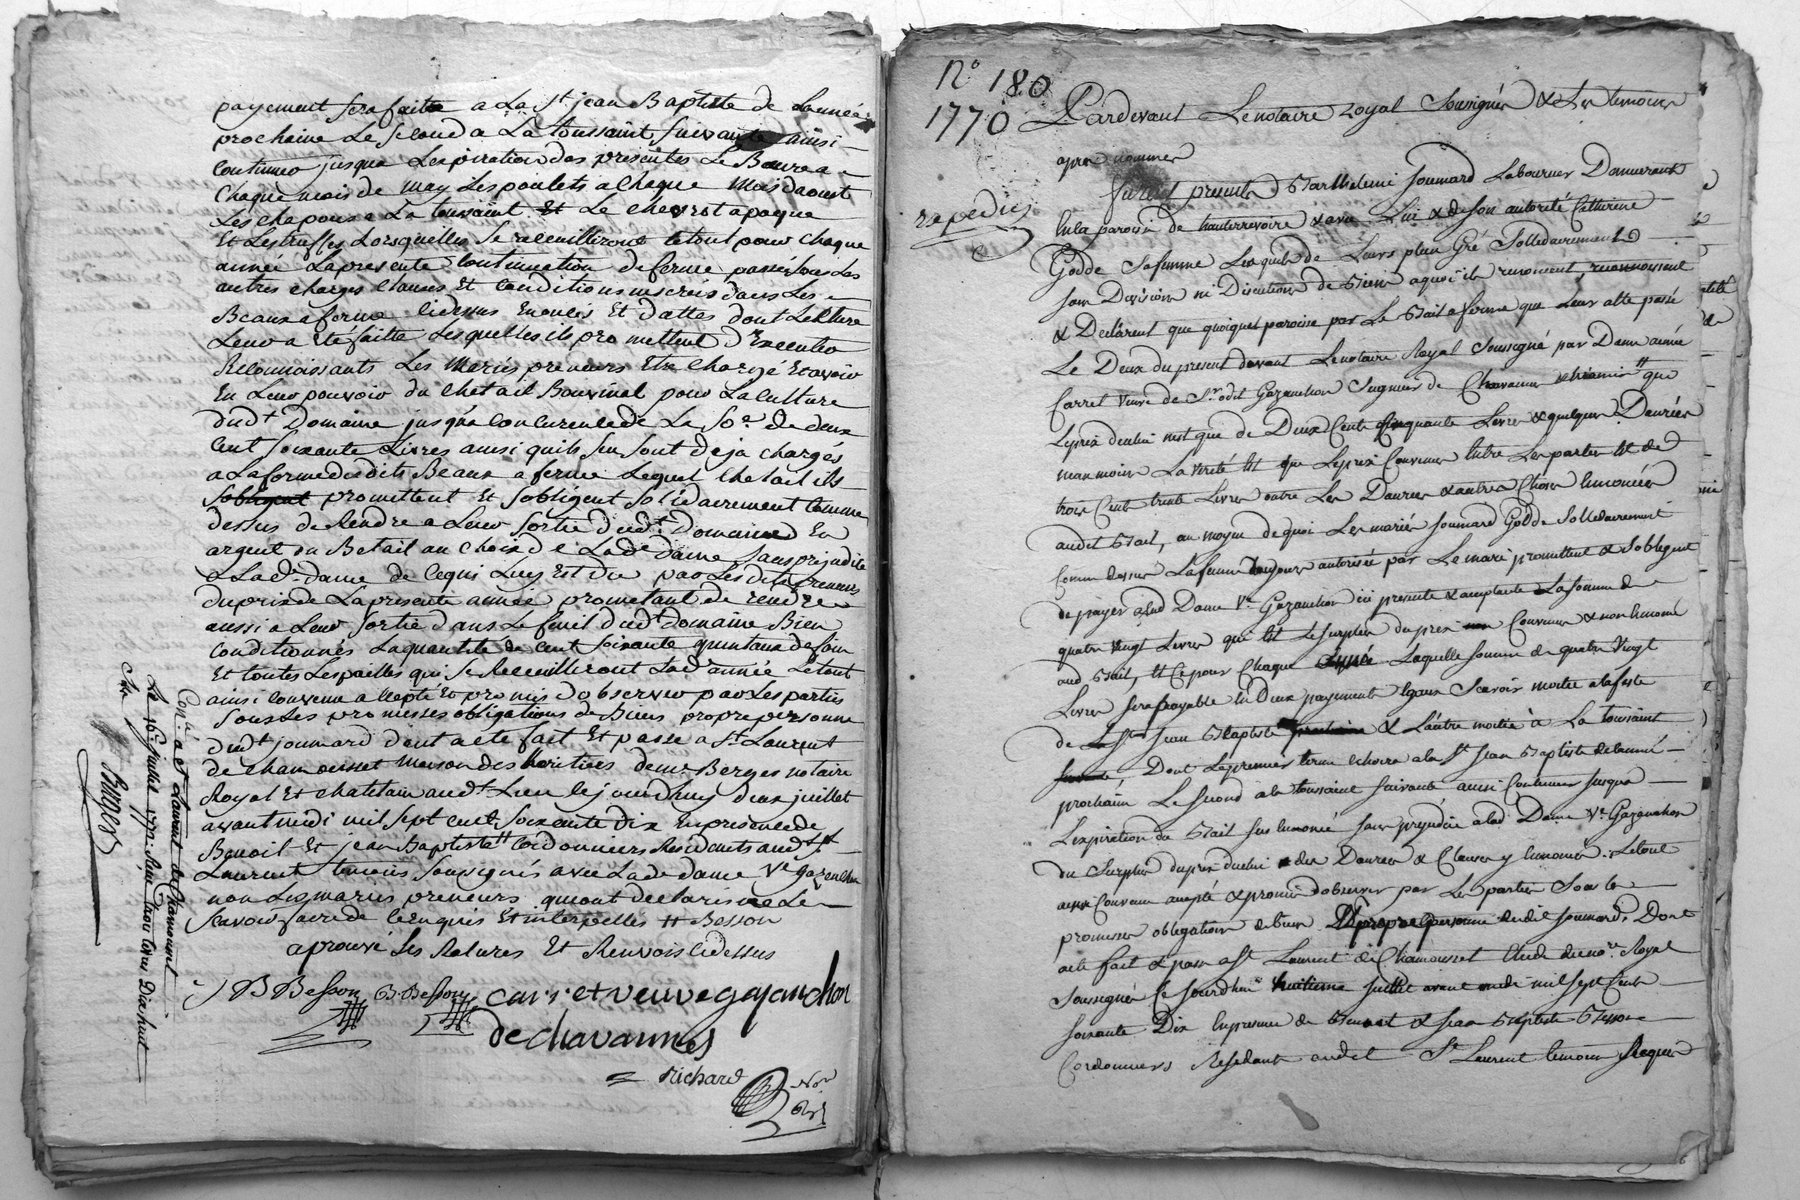 payement sera faitte a La St jean Baptiste de Lannée
prochaine Le second a La toussaint suivante ainsi
Continuer jusqua Lexpiration des presentes Le Beurre a
Chaque mois de may Les poulets a chaque Mois daoust
Les chapons a La toussaint Et Le chevrot a paque
Et Les truffes Lorsquelles Se receuilliront le tout pour chaque
année La presente Continuation de ferme passée sous Les
autres charges Clauses et Conditions inserés dans Les
Beaux a ferme Cidessus Enoncés Et dattés dont Lecture
Leur a Eté faitte Lesquelles ils promettent d'Executer
Reconnaissants Les Mariés preneurs Etre Chargé Et avoir
En Leur pouvoir du Chetail Bouvinal pour La Culture
dudt Domaine jusqua Concurence de La Soe de deux
Cent Soixante Livres ainsi quils Sen Sont deja chargés
a La forme desdits Beaux a ferme Lequel Chetail ils
Sobligent promettent Et Sobligent Solidairement Comme
dessus de Rendre a Leur Sortie dudt Domaine En
argent ou Betail au choix de Lade dame Sans prejudice
a Lade dame de Cequi Luy Est Du par Lesdits preneurs
du prix de La presente année promettant de rendre
aussi a Leur Sortie dans Le fenil dudt Domaine Bien
Conditionnés La quantité de Cent Soixante quintaux de foin
Et toutes Les pailles qui Se Receuilliront Lade année Le tout
ainsi Convenu accepté Et promis d'observer par Les parties
Sous Les promesses obligations de Biens propre personne
dudt joumard dont acte fait Et passé a St Laurent
de Chamousset Maison des heritiers de me Berges notaire
Royal Et Chatelain audt Lieu Cejourdhuy deux juillet
avant midi mil Sept Cent Soixante dix En presence de
Benoit Et jean Baptiste # Cordonniers Residants audt St
Laurent temoins Soussignés avec Lade dame Ve gazanchon
non Les mariés preneurs qui ont declaré ne Le
Scavoir faire de Ce Enquis Et interpellés # Besson
aprouvé Les Ratures Et Renvois Cidessus
J B Besson B. Besson carret veuve gazanchon
de chavannes
Richard
Nore
Royal
Conlé a St Laurent de Chamousset
Le 16e juillet 1770. Reçu
Berges
No 180
1770
Expedié
Pardevant Le notaire Royal Soussigné & Les temoins
apres nommés
furent presents Barthelemi Joumard Laboureur Demeurant
En la paroisse de hauterivoire & avec Lui & de Son autorité Catherine
Godde Sa femme Lesquels de Leurs plein Gré Sollidairement
Sans Division ni Discution de Biens a quoi ils renoncent, reconnoissent
& Declarent que quoiquil paroisse par Le Bail a ferme que Leur atte passé
Le Deux du present devant Le notaire Royal Soussigné par Dame aimée
Carret Veuve de Sr odet Gazanchon Seigneur de Chavannes que
Le prix dicelui nest que de Deux Cents Cinquante Livres & quelques Denrées
neanmoins La verité Est que Le prix Convenu Entre Les parties Est de
trois Cents trente Livres outre Les Denrées & autres Choses Enoncées
audit Bail, au moyen de quoi Les mariés Joumard Godde Sollidairement
Comme dessus La femme toujours autorisée par Le mari promettent & Sobligent
de payer a Lad Dame Ve Gazanchon ici presente & acceptante La Somme de
quatre vingt Livres qui Est Le Surplus du prix Convenu & non Enoncé
aud Bail, Et Ce pour Chaque année Laquelle Somme de quatre Vingt
Livres Sera payable En Deux payements Egaux Scavoir moitié a La feste
de St Jean Baptiste & L'autre moitié à La toussaint
Dont Le premier terme echoira a La St Jean Baptiste de Lanné
prochaine Le Second a la toussaint Suivante ainsi Continuer Jusqua
Lexpiration du Bail Sus Enoncé Sans prejudice a Lad Dame Ve Gazanchon
du Surplus du prix dicelui & des Denrées & Clauses y Enoncées. Le tout
ainsi Convenu accepté & promis d'observer par Les parties Sous Les
promesses obligations de biens & propre personne dudit Joumard. Dont
acte fait & passé a St Laurent de Chamousset Etude du nore Royal
Soussigné Ce Jourdhui huitieme Juillet avant midi mil Sept Cents
Soixante Dix En presence de Benoit & Jean Baptiste Besson
Cordonniers Residants audit St Laurent temoins Requis